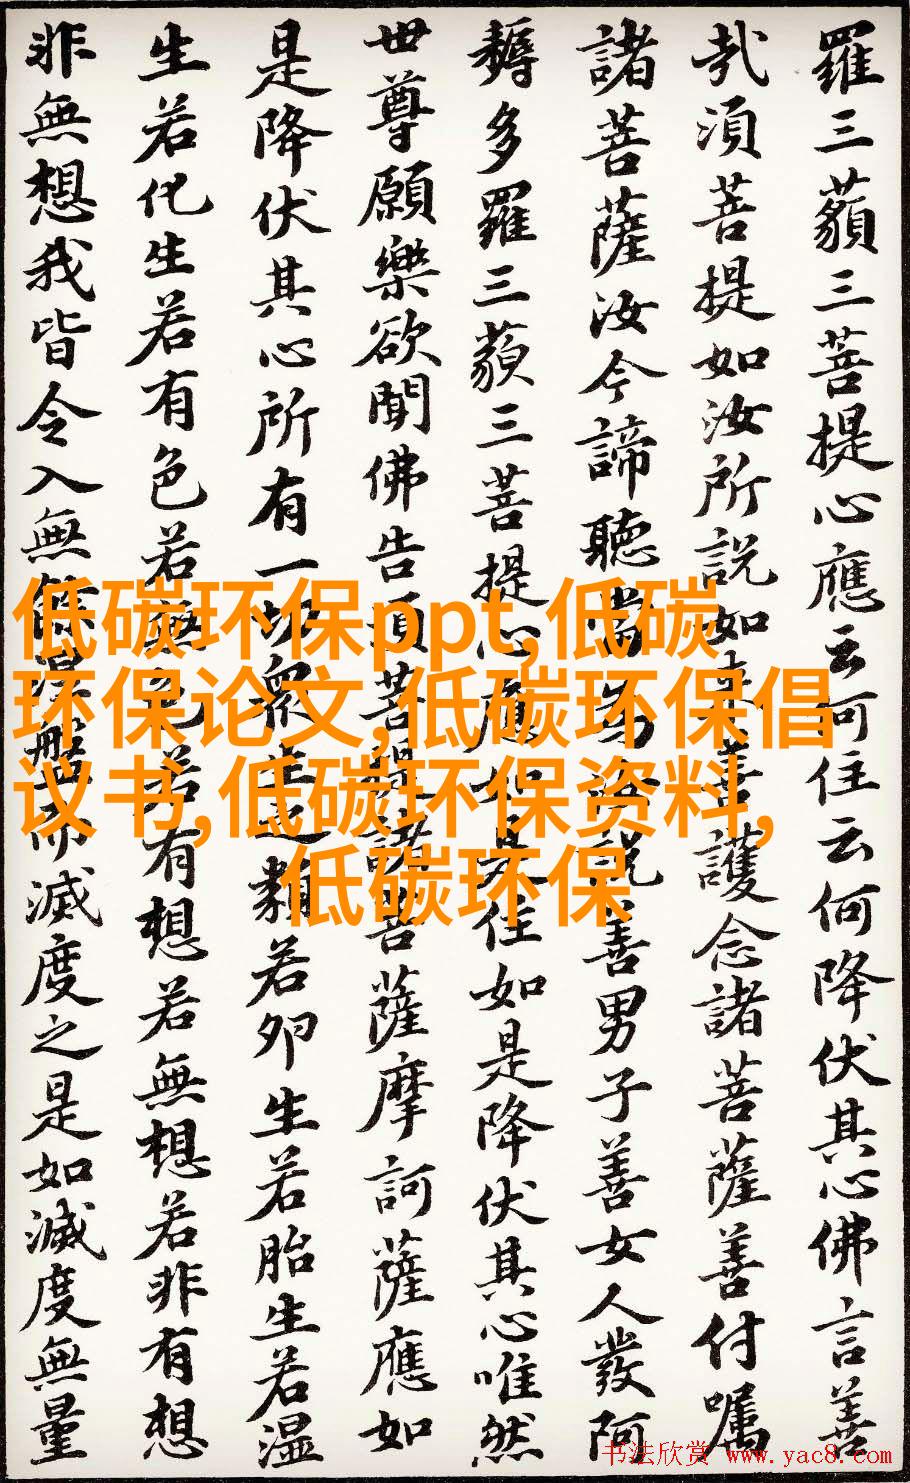 羅三藐三菩提心應云何住云何降伏其心佛言善
哉須菩提如汝所說如来善護念諸菩薩善付嘱
諸菩薩汝今諦聽當為汝說善男子善女人發阿
耨多羅三藐三菩提心應如是住如是降伏其心唯然
世尊願樂欲聞佛告須菩提諸菩薩摩訶薩應如
是降伏其心所有一切眾生之類若卵生若胎生若湿
生若化生若有色若無色若有想若無想若非有想
非無想我皆令入無餘涅槃而滅度之是如滅度無量
低碳环保ppt,低碳
环保论文,低碳环保倡
议书,低碳环保资料,
低碳环保
书法欣赏 www.yac8.com